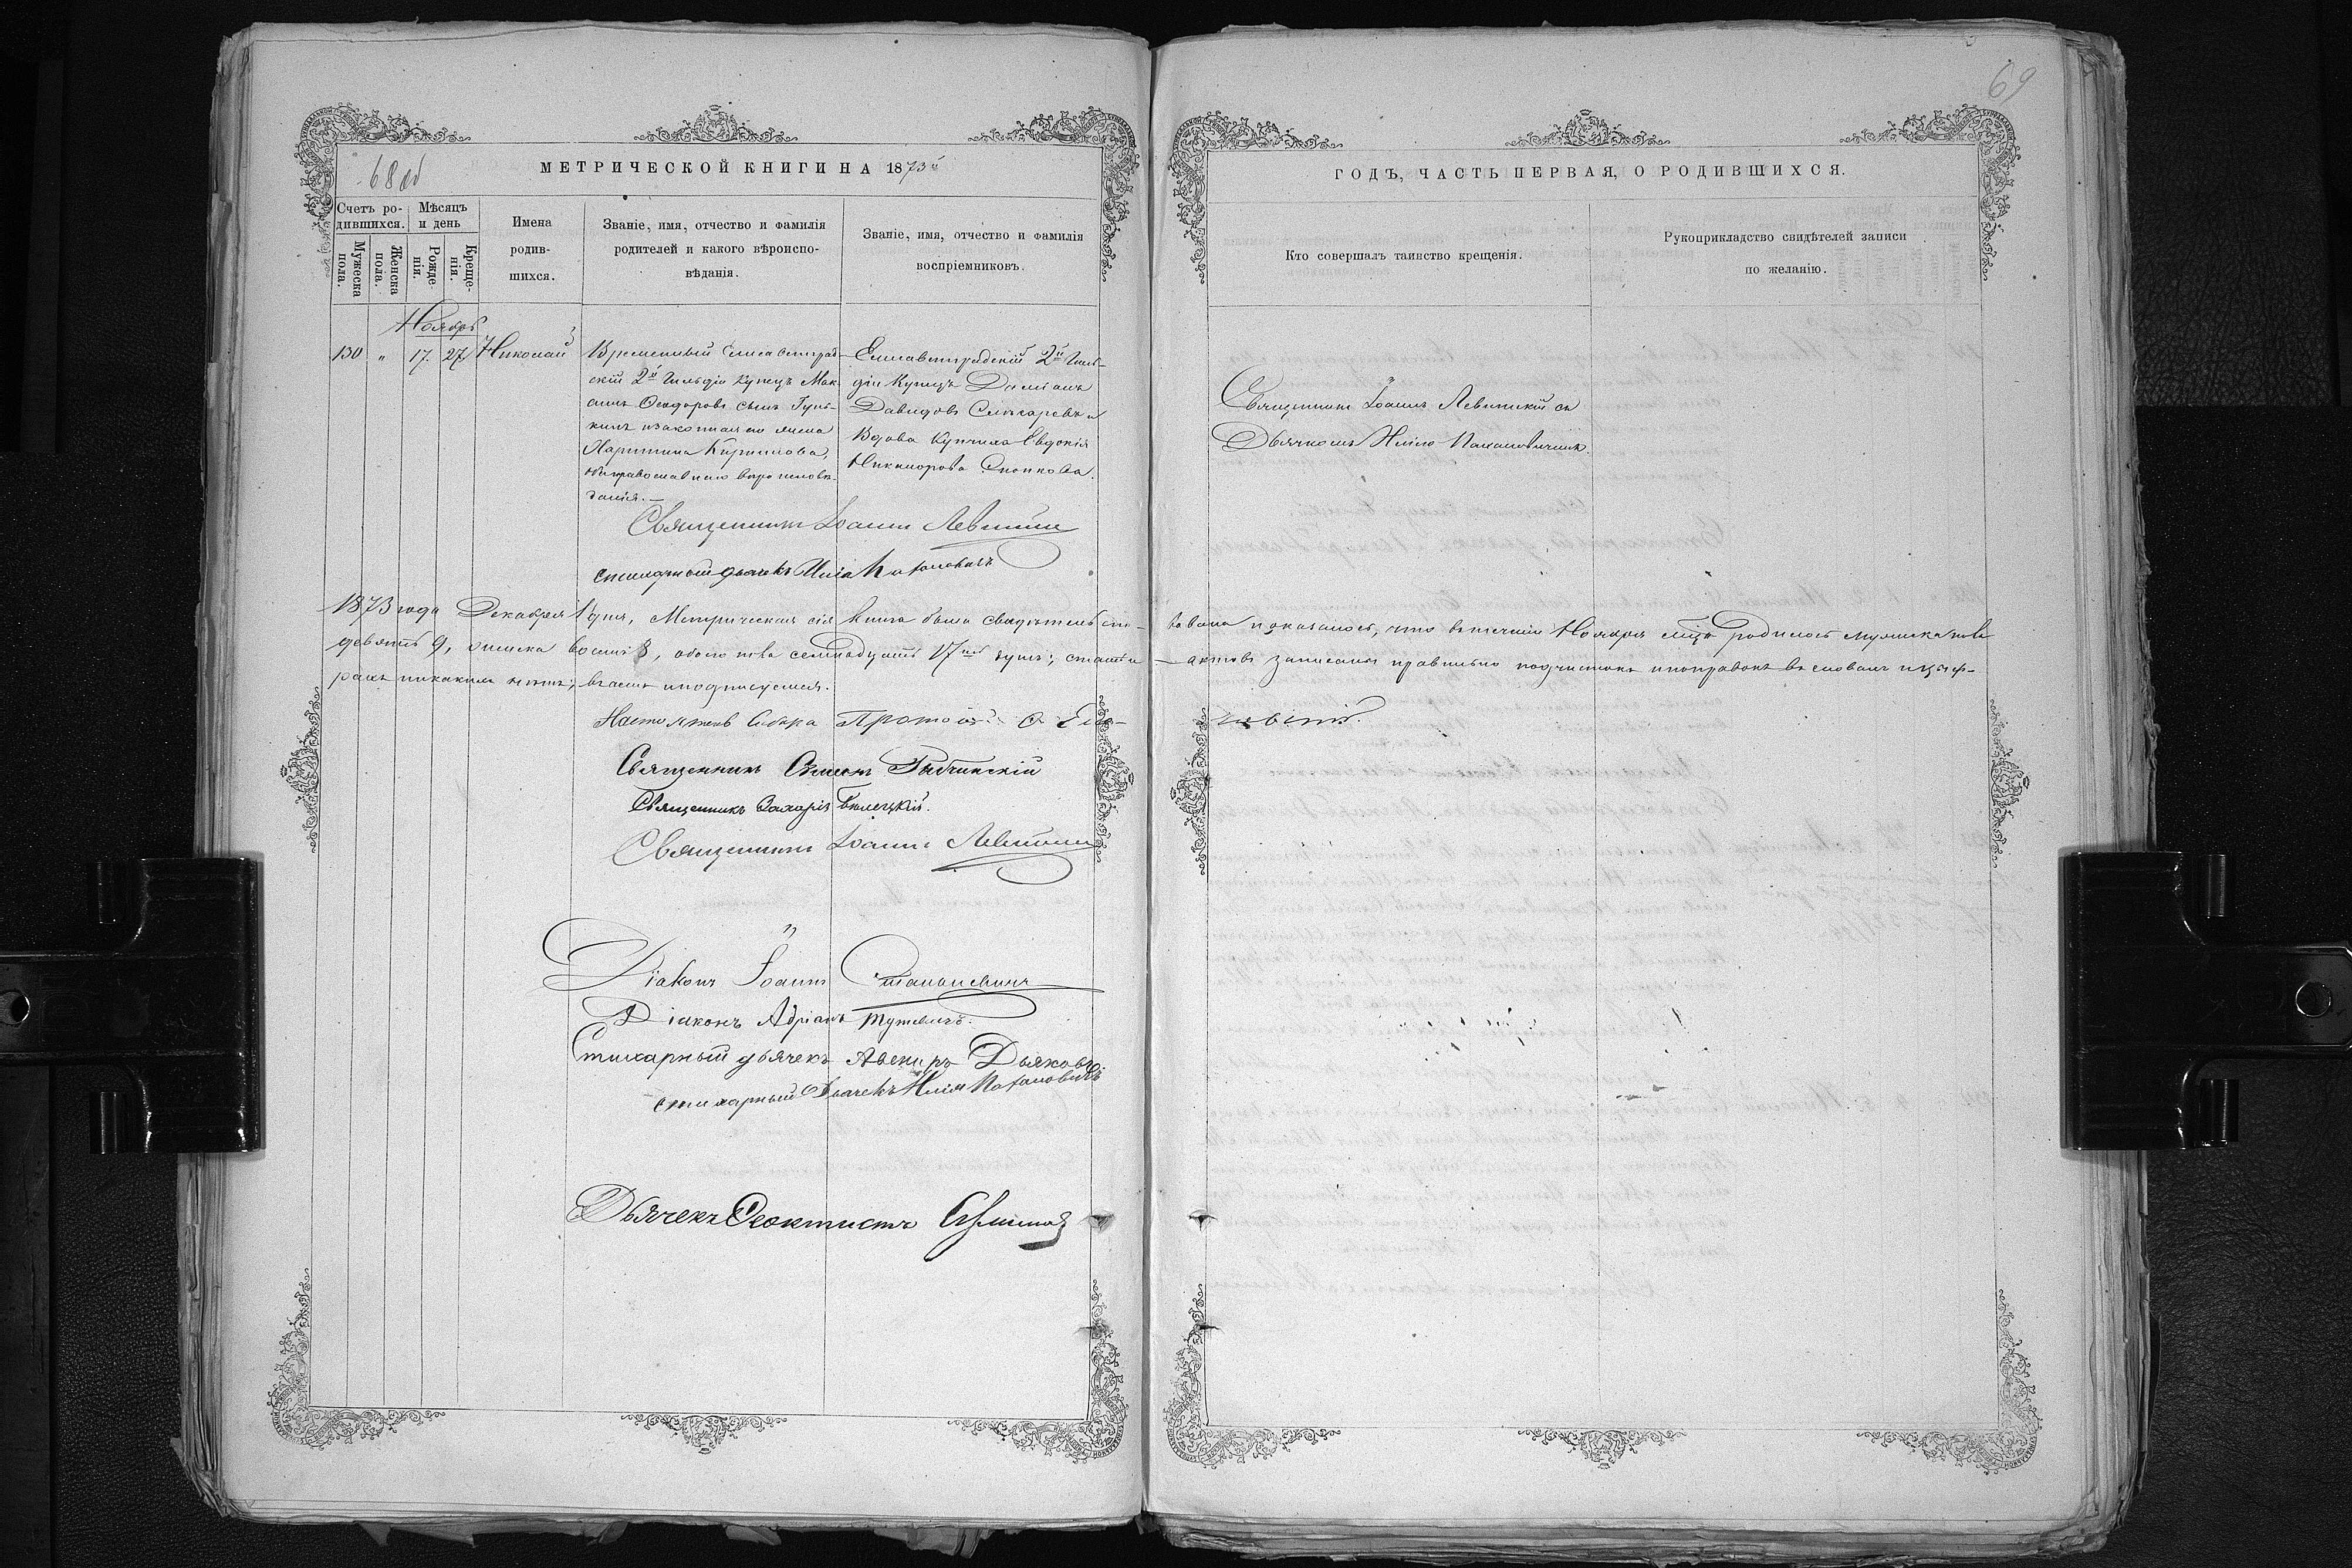 69
68 об
МЕТРИЧЕСКОЙ КНИГИ НА 1873й
ГОДЪ, ЧАСТЬ ПЕРВАЯ, О РОДИВШИХСЯ.
Счетъ ро-
дившихся.
Мужеска
пола.
Женска
пола.
Мѣсяцъ
и день
Рожде-
нія.
Креще-
нія.
Имена
родив-
шихся.
Званіе, имя, отчество и фамилія
родителей и какого вѣроиспо-
вѣданія.
Званіе, имя, отчество и фамилія
воспріемниковъ.
Кто совершалъ таинство крещенія.
Рукоприкладство свидѣтелей записи
по желанію.
Ноябрь
130 „ 17. 27. Николай
Временный Елисаветград-
скій 2й Гильдіи Купецъ Мак-
симъ Ѳеодоровъ сынъ
и законная его жена
Харитина Кирилова,
оба православнаго вѣроисповѣ-
данія.—
Елисаветградскій 2й Гиль-
діи Купецъ Даміанъ
Давидовъ и
Вдова Купчиха Евдокія
Никифорова
Священникъ Іоаннъ Левитскій съ
Дьячкомъ Иліею
Священникъ Іоаннъ Левитскій
стихарный дьячекъ Илія
1873 года Декабря 1 дня, Метрическая сія книга была свидѣтельство-
вана и оказалось, что въ теченіи Ноября м-ца родилось мужеска пола
девять 9, женска восемь 8, обоего пола семнадцать 17ть душъ; статьи
актовъ записаны правильно подчистокъ и поправокъ въ словахъ и циф-
рахъ никакихъ нѣтъ; въ чемъ и подписуемся.
Настоятель Собора
Священникъ Симеонъ
Священникъ Захарія Бѣлецкій.
Священникъ Іоаннъ Левитскій
Діаконъ Іоаннъ Станиславичъ
Діаконъ Адріанъ
Стихарный дьячекъ Авениръ Дьяковъ
стихарный Дьячекъ Илія
Дьячекъ Ѳеоктистъ